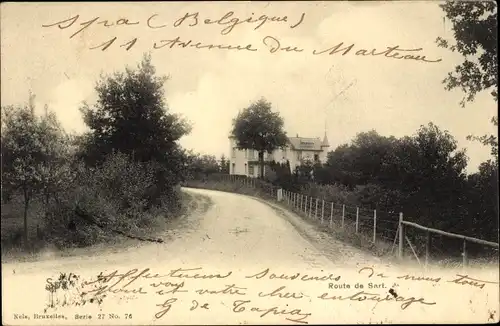 Spa (Belgique)
11 Avenue du Marteau
Route de Sart.
Affectueux souvenirs de J.
pour vous et votre cher entourage
G de Tapia
Nels, Bruxelles, Serie 27 No. 76